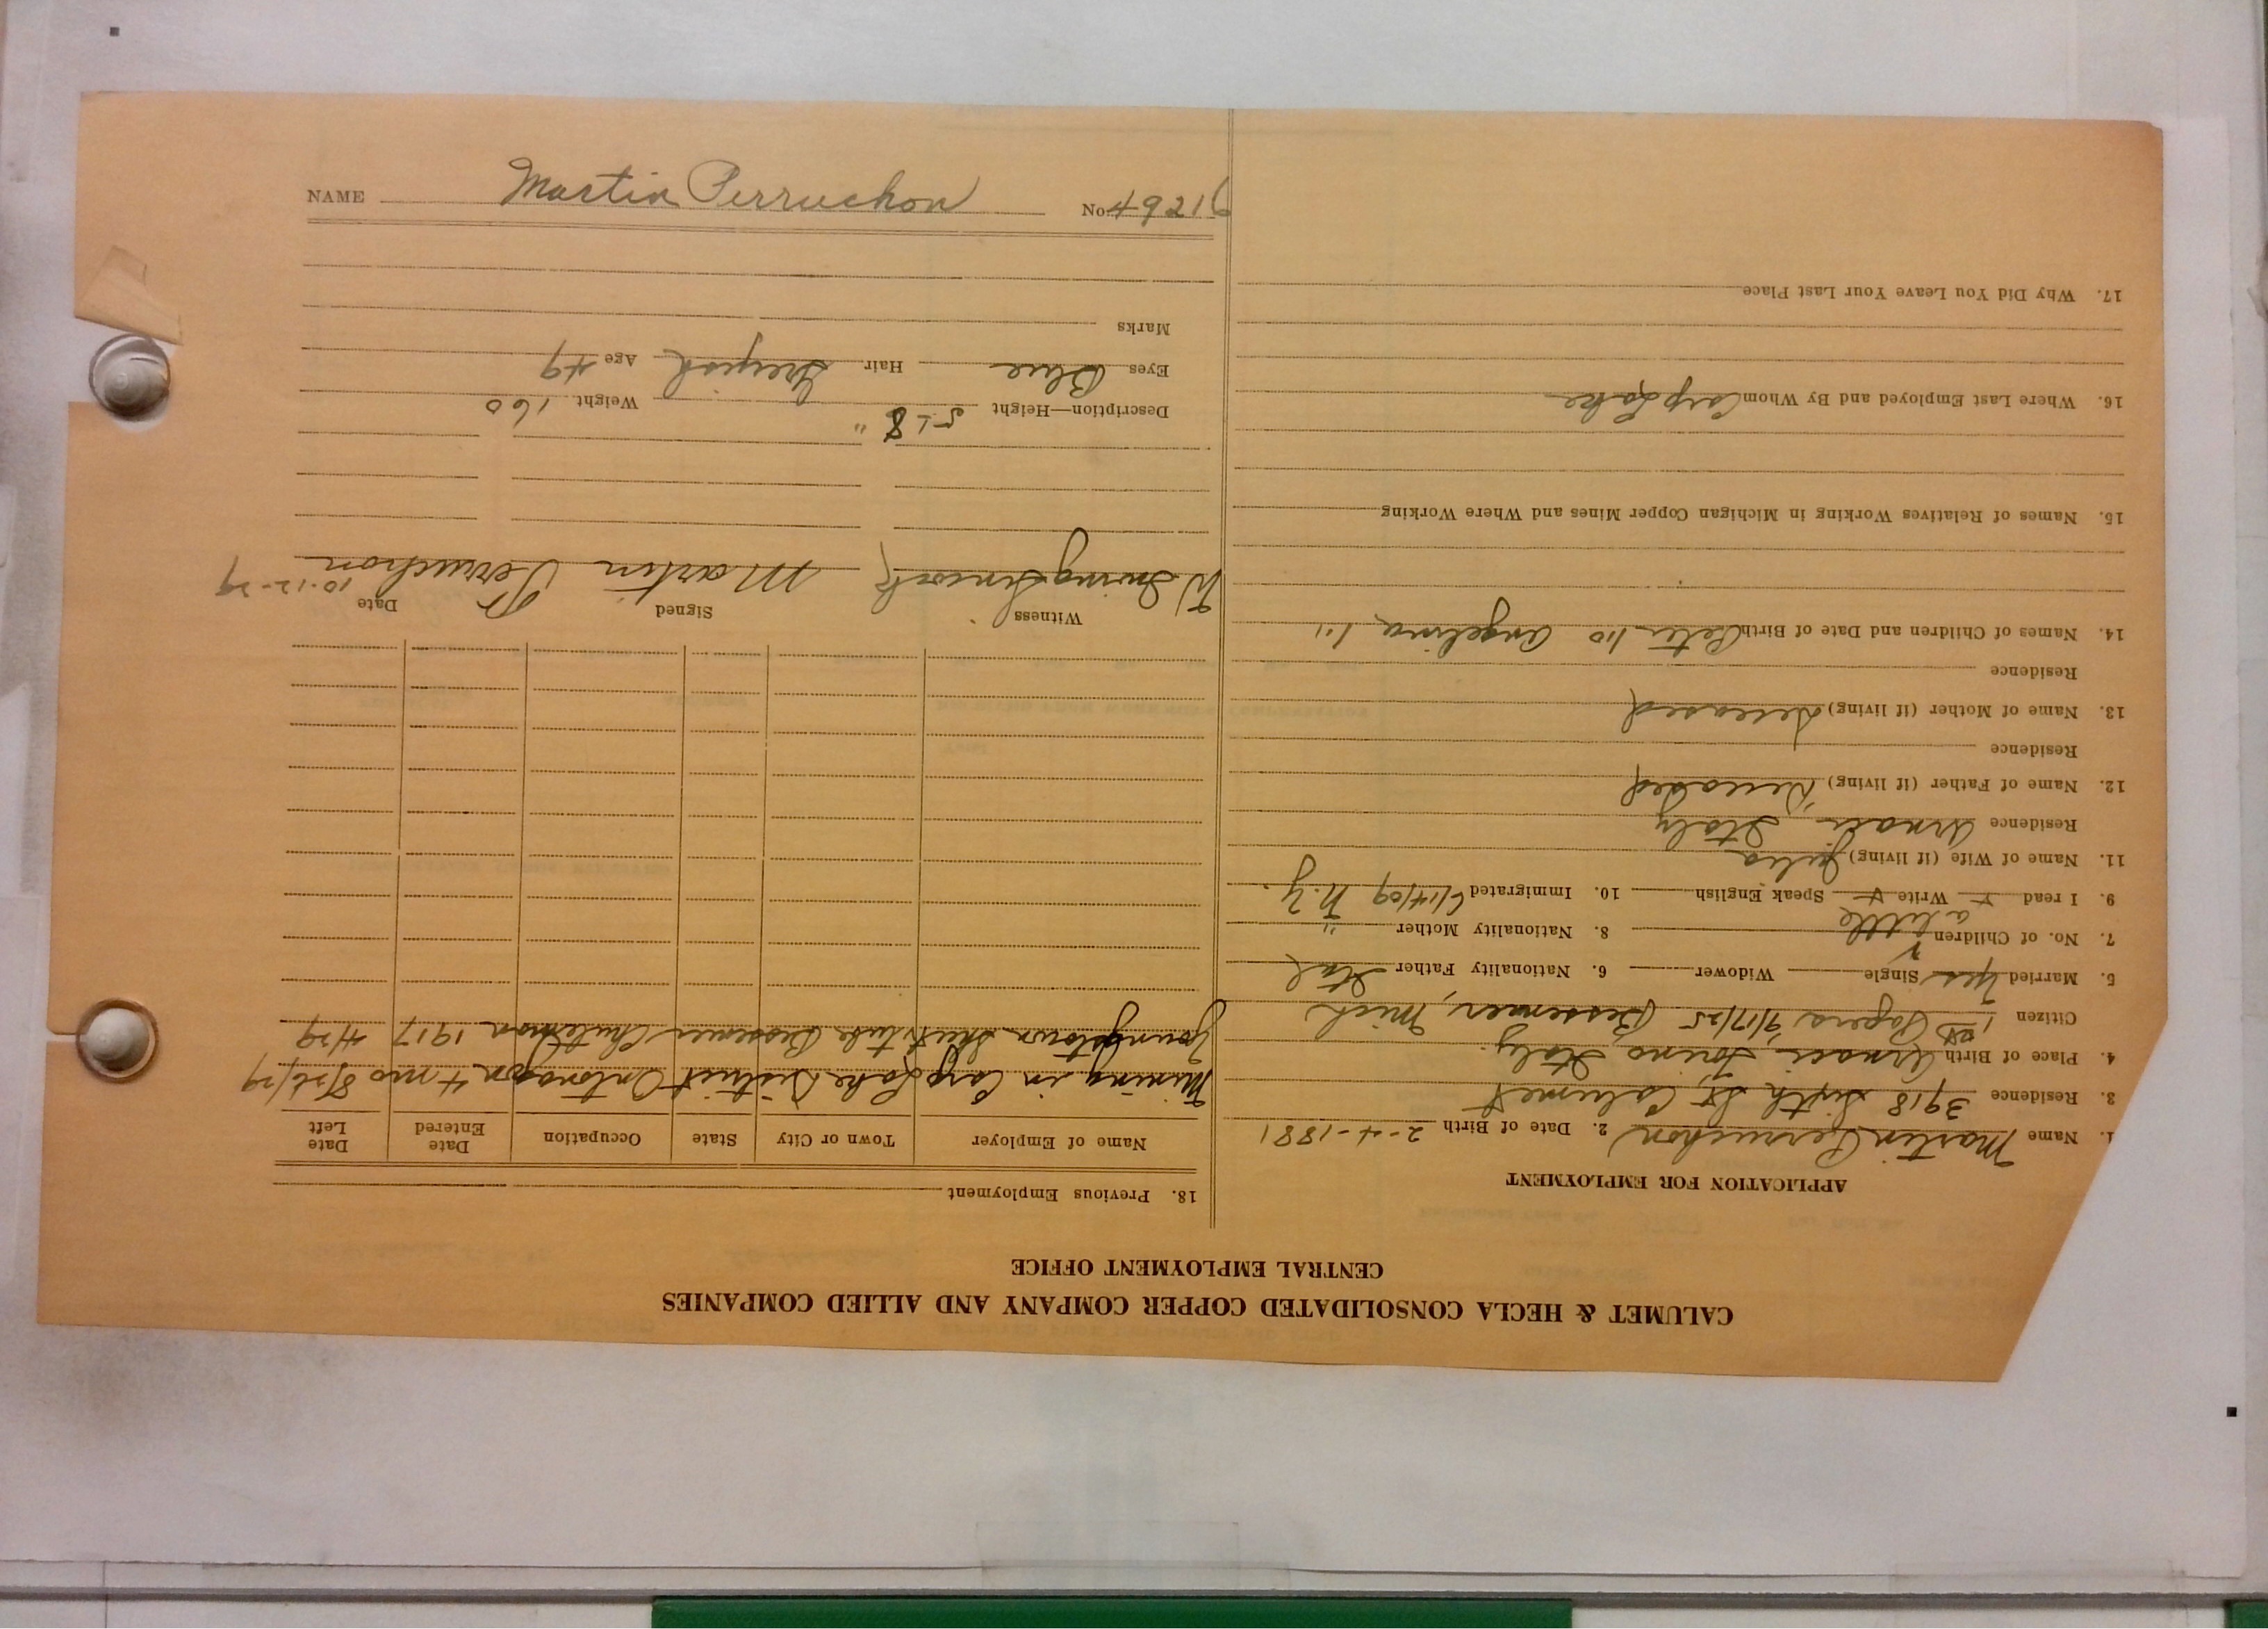 NAME Martin Perruchon No. 49216
CALUMET & HECLA CONSOLIDATED COPPER COMPANY AND ALLIED COMPANIES
CENTRAL EMPLOYMENT OFFICE
APPLICATION FOR EMPLOYMENT
1. Name Martin Perruchon 2. Date of Birth 2-4-1881
3. Residence 3918 Sixth St Calumet
4. Place of Birth Arnaci Torino Italy
Citizen 1st Papers 9/17/25 Bessemer, Mich
5. Married Yes Single Widower 6. Nationality Father Ital
7. No. of Children 2 8. Nationality Mother "
a little
9. I read Write Speak English 10. Immigrated 6/14/09 N.Y.
11. Name of Wife (if living) Julia
Residence Arnaci Italy
12. Name of Father (if living) Deceased
Residence
13. Name of Mother (if living) Deceased
Residence
14. Names of Children and Date of Birth Peter 20 Angelina
15. Names of Relatives Working in Michigan Copper Mines and Where Working
16. Where Last Employed and By Whom Carp Lake
17. Why Did You Leave Your Last Place
18. Previous Employment
Name of Employer Town or City State Occupation Date Entered Date Left
Mining in Carp Lake District Ontonagon 4 mo 8/26/29
Youngstown Sheet & tube Bessemer 1917 4/29
Witness Signed Date
W. Irving Martin Perruchon 10-12-29
Description—Height 5-8" Weight 160
Eyes Blue Hair Greyish Age 49
Marks